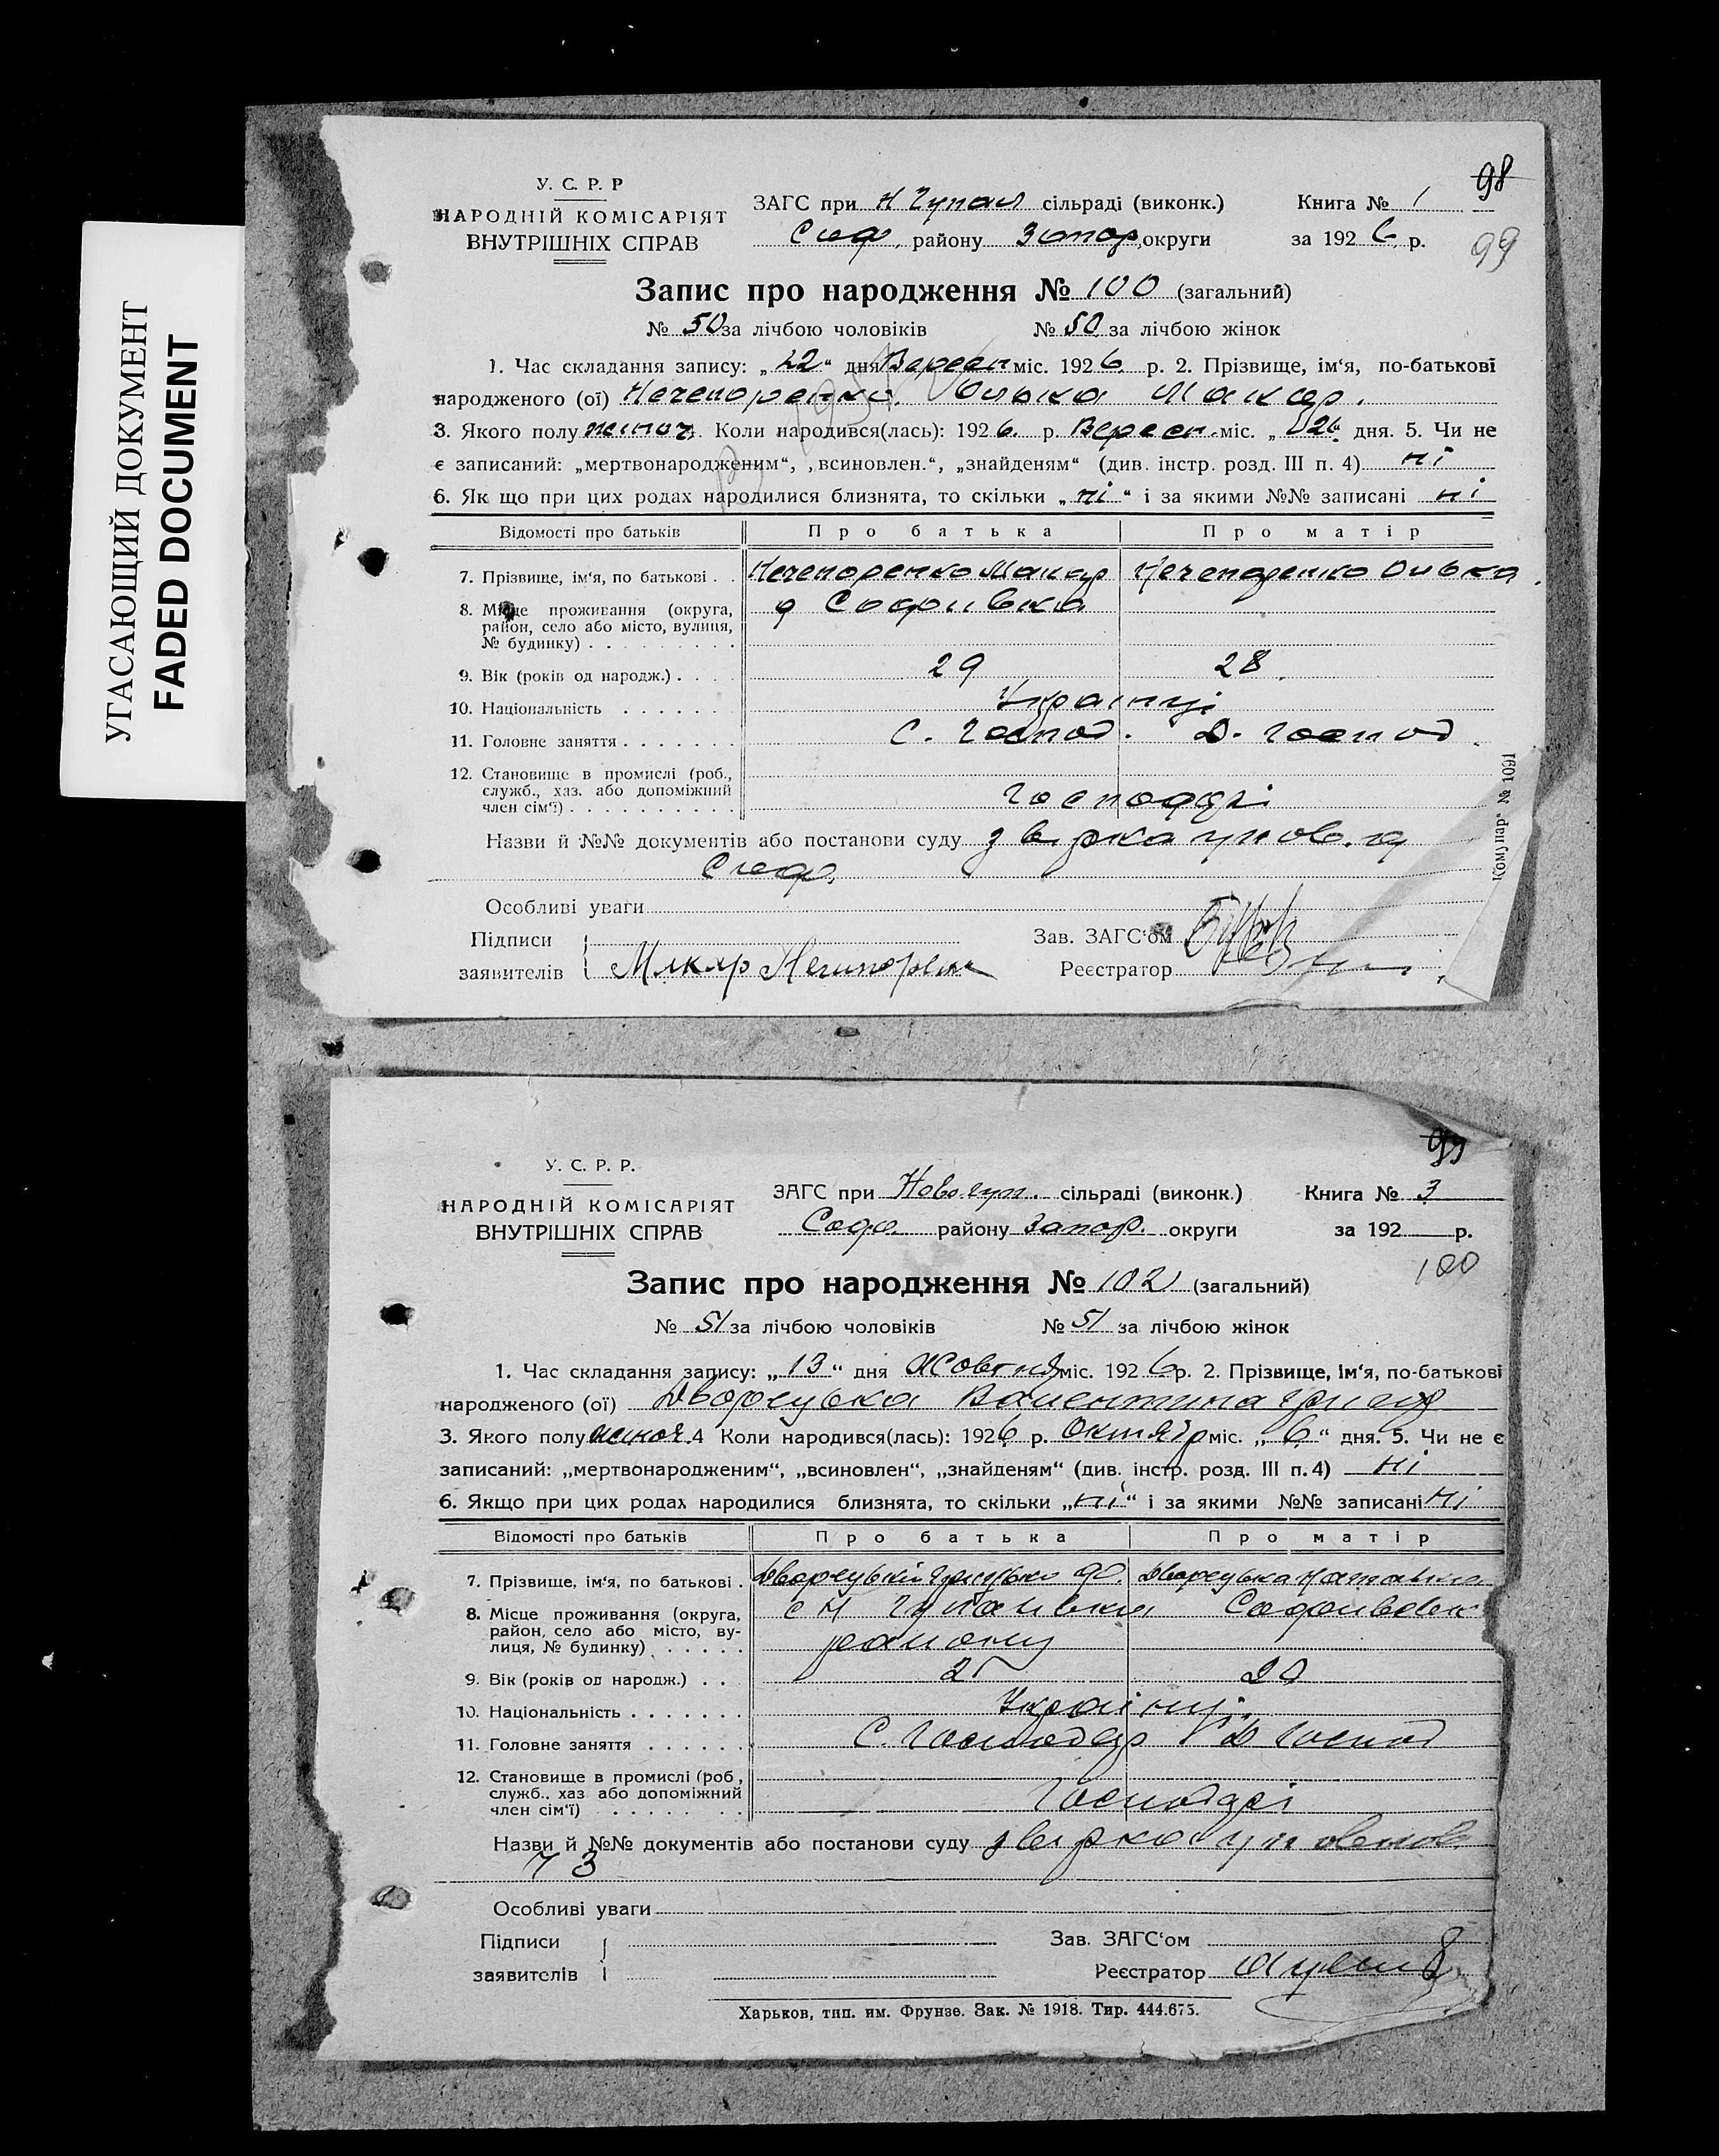 УГАСАЮЩИЙ ДОКУМЕНТ
FADED DOCUMENT
98
99
У. С. Р. Р
НАРОДНІЙ КОМІСАРІЯТ
ВНУТРІШНІХ СПРАВ
ЗАГС при Н Чупал сільраді (виконк.) Книга № 1
Соф. району Запор. округи за 192 6 р.
Запис про народження № 100 (загальний)
№ 50 за лічбою чоловіків № 50 за лічбою жінок
1. Час складання запису: „ 22 “ дня Вересн міс. 192 6 р. 2. Прізвище, ім‘я, по-батькові
народженого (ої) Нечепоренко Олька Макар.
3. Якого полу жіноч. Коли народився(лась): 192 6. р. Вересн. міс. „ дня. 5. Чи не
є записаний: „мертвонародженим“, „всиновлен.“, „знайденям“ (див. інстр. розд. III п. 4) ні
6. Як що при цих родах народилися близнята, то скільки „ ні “ і за якими №№ записані ні
Відомості про батьків Про батька Про матір
7. Прізвище, ім‘я, по батькові . . Нечепоренко Макар Нечепоренко Олька
8. Місце проживання (округа, Софиівка
район, село або місто, вулиця,
№ будинку) . . . . . . . . .
9. Вік (років од народж.) . . . . 29 28
10. Національність . . . . . . Українці
11. Головне заняття . . . . . . . С. Господ. Д. Господ
12. Становище в промислі (роб.,
служб., хаз. або допоміжний Господарі
член сім‘ї) . . . . . . . . . .
Назви й №№ документів або постанови суду
Особливі уваги
Підписи Зав. ЗАГС‘ом
заявителів Макар Нечипоренк Реєстратор
Комунар“ № 1091
99
100
У. С. Р. Р.
НАРОДНІЙ КОМІСАРІЯТ
ВНУТРІШНІХ СПРАВ
ЗАГС при Новочуп. сільраді (виконк.) Книга № 3
Софо. району Запор. округи за 192 р.
Запис про народження № 102 (загальний)
№ 51 за лічбою чоловіків № 51 за лічбою жінок
1. Час складання запису: „ 13 “ дня Жовтня міс. 192 6 р. 2. Прізвище, ім‘я, по-батькові
народженого (ої) Дворецька Валентина Григор
3. Якого полу жіноч. 4 Коли народився(лась): 192 6 р. Октябр міс. „ 6 “ дня. 5. Чи не є
записаний: „мертвонародженим“, „всиновлен“, „знайденям“ (див. інстр. розд. III п. 4) ні
6. Якщо при цих родах народилися близнята, то скільки „ ні “ і за якими №№ записані ні
Відомості про батьків Про батька Про матір
7. Прізвище, ім‘я, по батькові . Дворецький Грицько Дворецька Наталка
8. Місце проживання (округа, с Н Чупалівка Софиівськ
район, село або місто, ву-
лиця, № будинку) . . . . . району
9. Вік (років од народж.) . . 20
10. Національність . . . . . . . Українці
11. Головне заняття . . . . . . С. Господар Д Господ
12. Становище в промислі (роб,
служб., хаз або допоміжний Господарі
член сім‘ї) . . . . . . . .
Назви й №№ документів або постанови суду
73
Особливі уваги
Підписи Зав. ЗАГС‘ом
заявителів Реєстратор
Харьков, тип. им. Фрунзе. Зак. № 1918. Тир. 444.675.